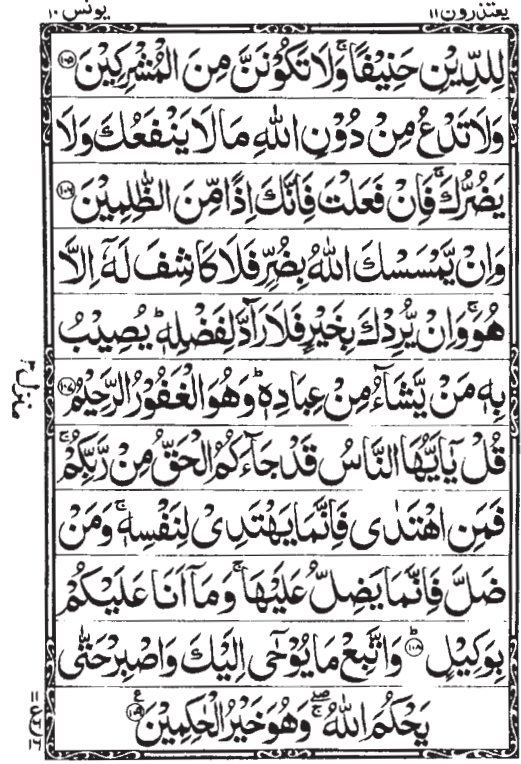 یعتذرون ۱۱
یونس ۱۰
لِلدِّيْنِ حَنِيْفًا ۚ وَلَا تَكُوْنَنَّ مِنَ الْمُشْرِكِيْنَ ۝۱۰۵
وَلَا تَدْعُ مِنْ دُوْنِ اللّٰهِ مَا لَا يَنْفَعُكَ وَلَا
يَضُرُّكَ ۚ فَاِنْ فَعَلْتَ فَاِنَّكَ اِذًا مِّنَ الظّٰلِمِيْنَ ۝۱۰۶
وَاِنْ يَّمْسَسْكَ اللّٰهُ بِضُرٍّ فَلَا كَاشِفَ لَهٗۤ اِلَّا
هُوَ ۚ وَاِنْ يُّرِدْكَ بِخَيْرٍ فَلَا رَآدَّ لِفَضْلِهٖ ؕ يُصِيْبُ
بِهٖ مَنْ يَّشَآءُ مِنْ عِبَادِهٖ ؕ وَهُوَ الْغَفُوْرُ الرَّحِيْمُ ۝۱۰۷
قُلْ يٰۤاَيُّهَا النَّاسُ قَدْ جَآءَكُمُ الْحَقُّ مِنْ رَّبِّكُمْ ۚ
فَمَنِ اهْتَدٰى فَاِنَّمَا يَهْتَدِىْ لِنَفْسِهٖ ۚ وَمَنْ
ضَلَّ فَاِنَّمَا يَضِلُّ عَلَيْهَا ۚ وَمَاۤ اَنَا عَلَيْكُمْ
بِوَكِيْلٍ ؕ ۝۱۰۸ وَاتَّبِعْ مَا يُوْحٰۤى اِلَيْكَ وَاصْبِرْ حَتّٰى
يَحْكُمَ اللّٰهُ ۖ ۚ وَهُوَ خَيْرُ الْحٰكِمِيْنَ ۝۱۰۹ ع
منزل ۳